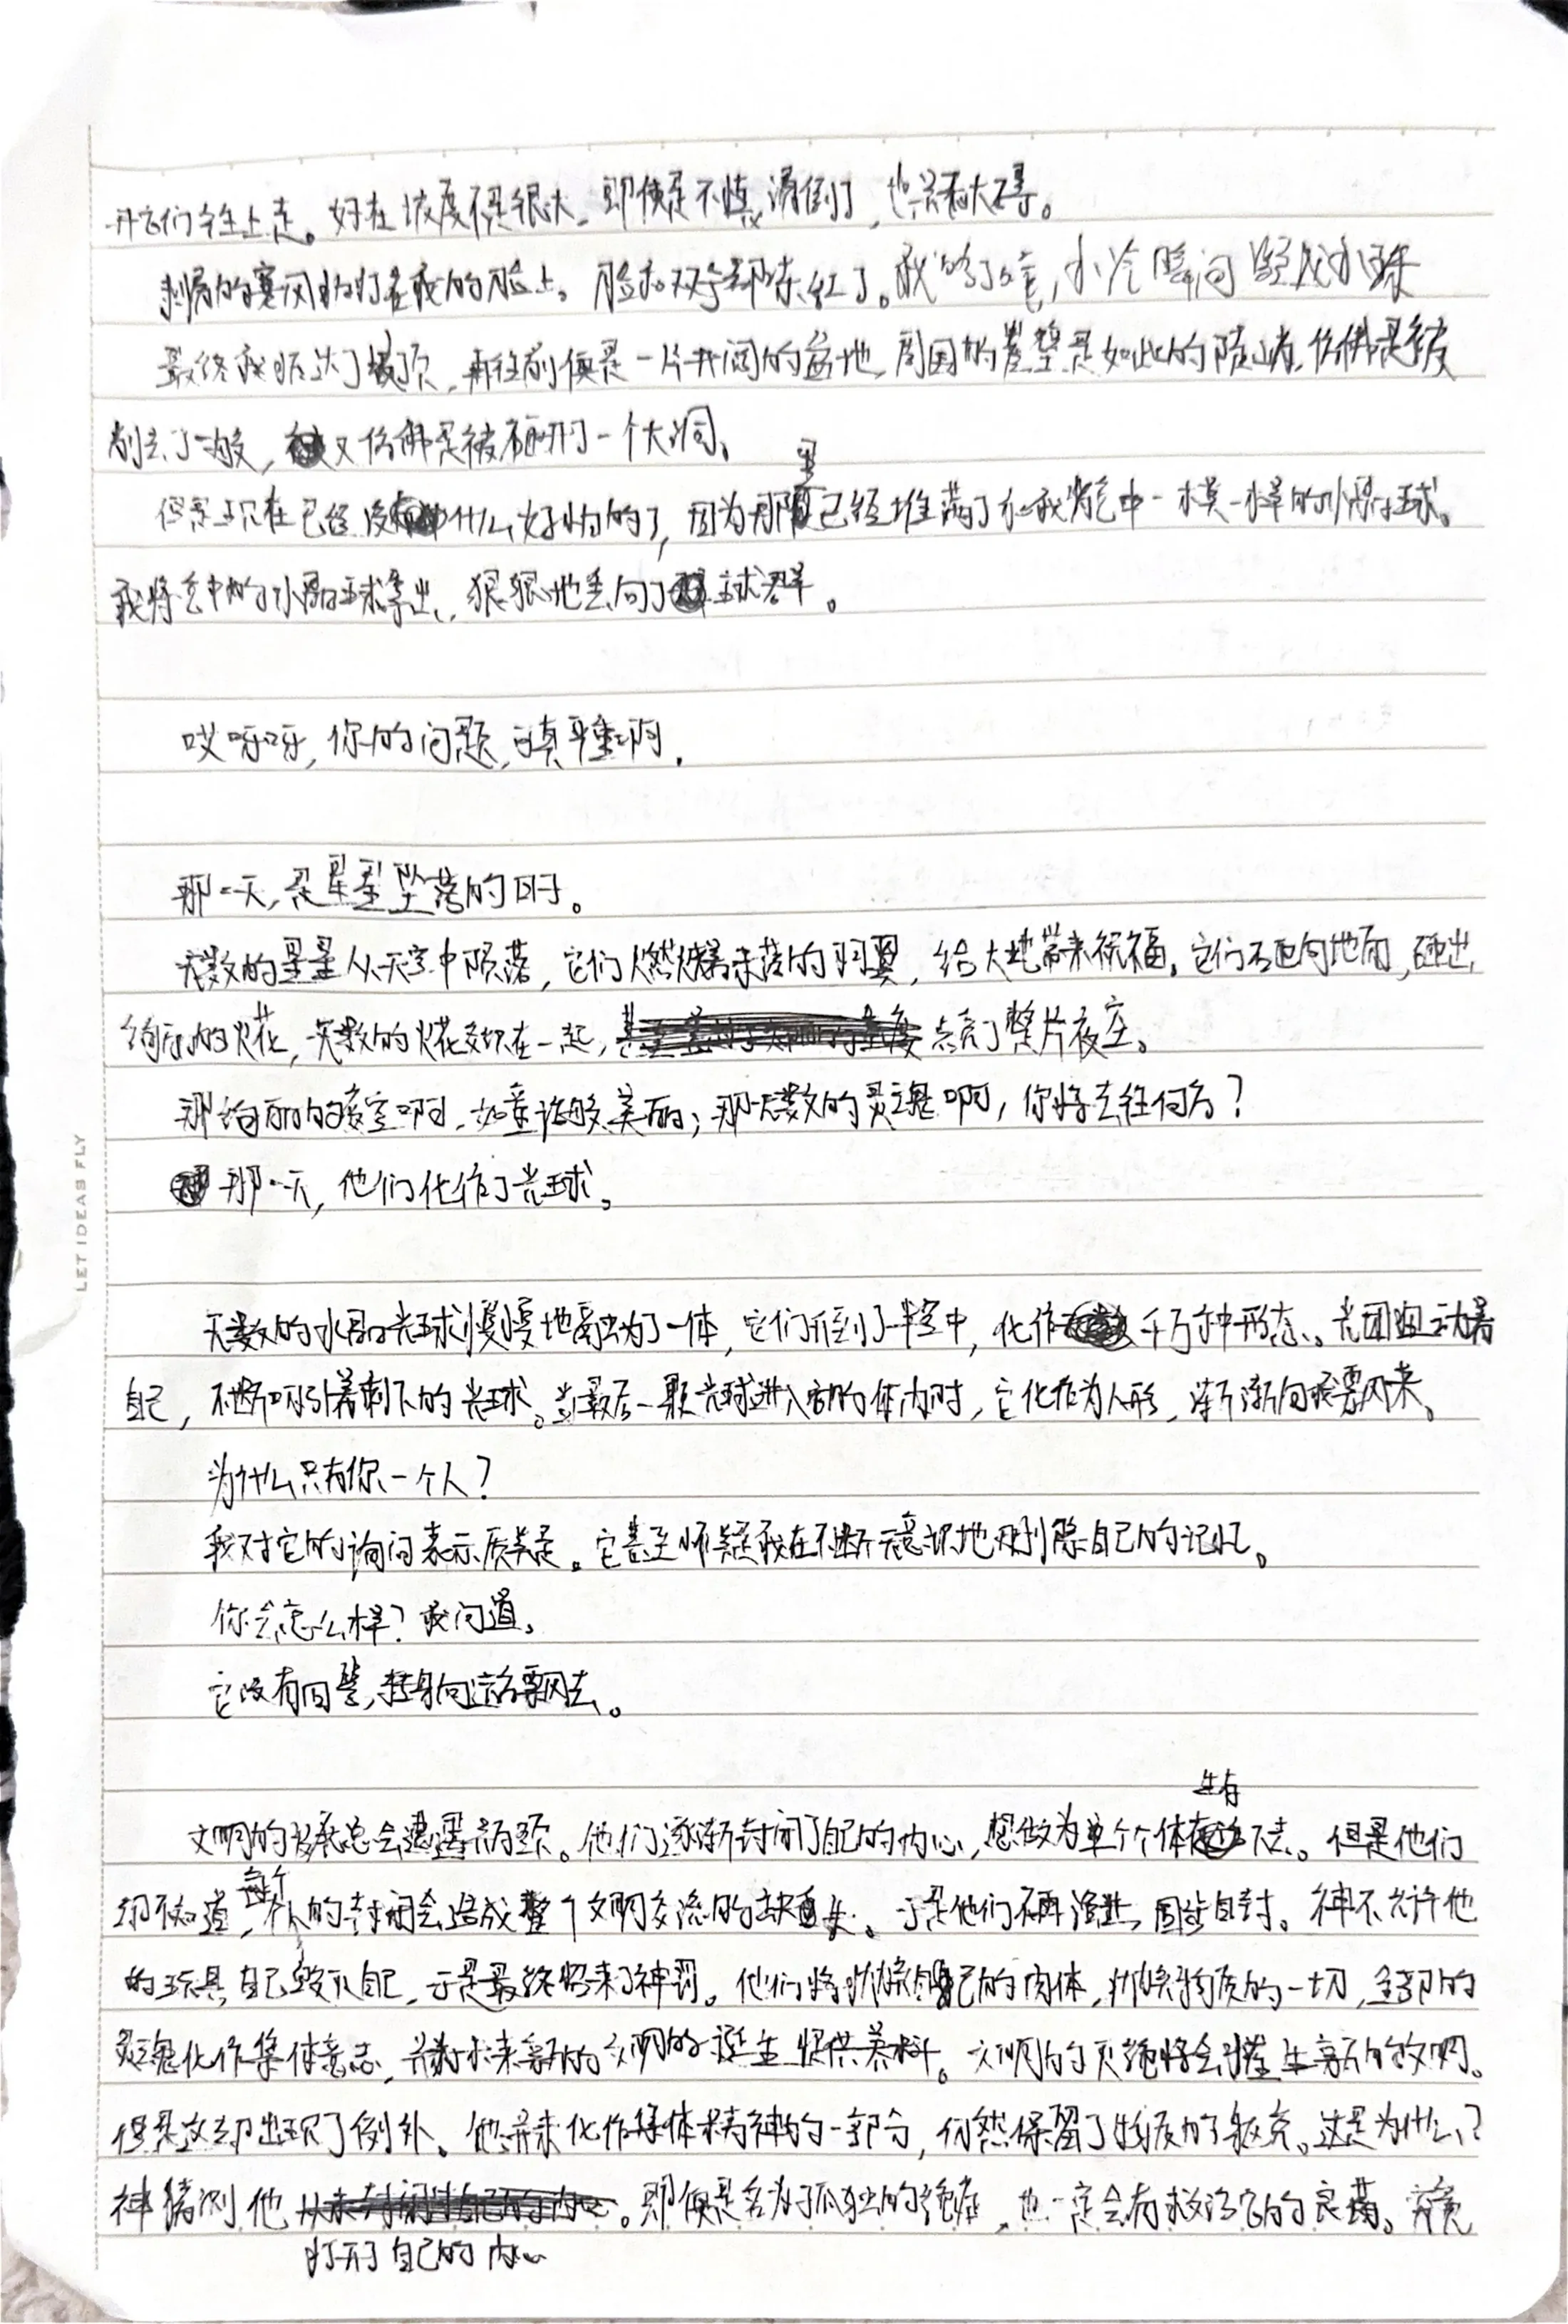 开它们往上走。好在坡度不是很大，即使是不慎滑倒了，也没有大碍。
刺痛的寒风拍打在我的脸上。脸和双手都冻红了。我哈了口气，水汽瞬间凝成小珠
最终我抵达了坡顶，再往前便是一片开阔的盆地，周围的崖壁是如此的陡峭，仿佛是被
削去了一般，又仿佛是被砸开了一个大洞。
但是现在已经没什么好怕的了，因为那里已经堆满了和我背包中一模一样的水晶球。
我将包中的水晶球拿出，狠狠地丢向了球群。
哎呀呀，你的问题，可真严重啊。
那一天，是星星坠落的日子。
无数的星星从天空中陨落，它们燃烧着未落的羽翼，给大地带来祝福。它们砸向地面，碰出
绚丽的火花，无数的火花交织在一起，点亮了整片夜空。
那绚丽的夜空啊，如童话般美丽；那无数的灵魂啊，你将去往何方？
那一天，他们化作了光球。
无数的水晶光球慢慢地融为了一体，它们在到了半空中，化作千万种形态。光团蠕动着
自己，不断吸引着剩下的光球。当最后一颗光球进入它的体内时，它化作为人形，渐渐向我飘来。
为什么只有你一个人？
我对它的询问表示质疑。它甚至怀疑我在不断无意识地删除自己的记忆。
你会怎么样？我问道。
它没有回答，转身向远方飘去。
文明的发展总会遭遇瓶颈。他们逐渐封闭了自己的内心，想做为单个个体生存下去。但是他们
却不知道，每个人的封闭会造成整个文明交流的缺失。于是他们不再渐进，固步自封。神不允许他
的玩具自己毁灭自己，于是最终招来了神罚。他们将抛掉自己的肉体，抛掉物质的一切，全部的
灵魂化作集体意志，并为未来新的文明的诞生提供养料。文明的灭绝将会催生新的文明。
但是这却出现了例外。他并未化作集体精神的一部分，仍然保留了物质的躯壳。这是为什么？
神猜测他打开了自己的内心。即便是名为孤独的绝症，也一定会有救治它的良药。究竟
LET IDEAS FLY